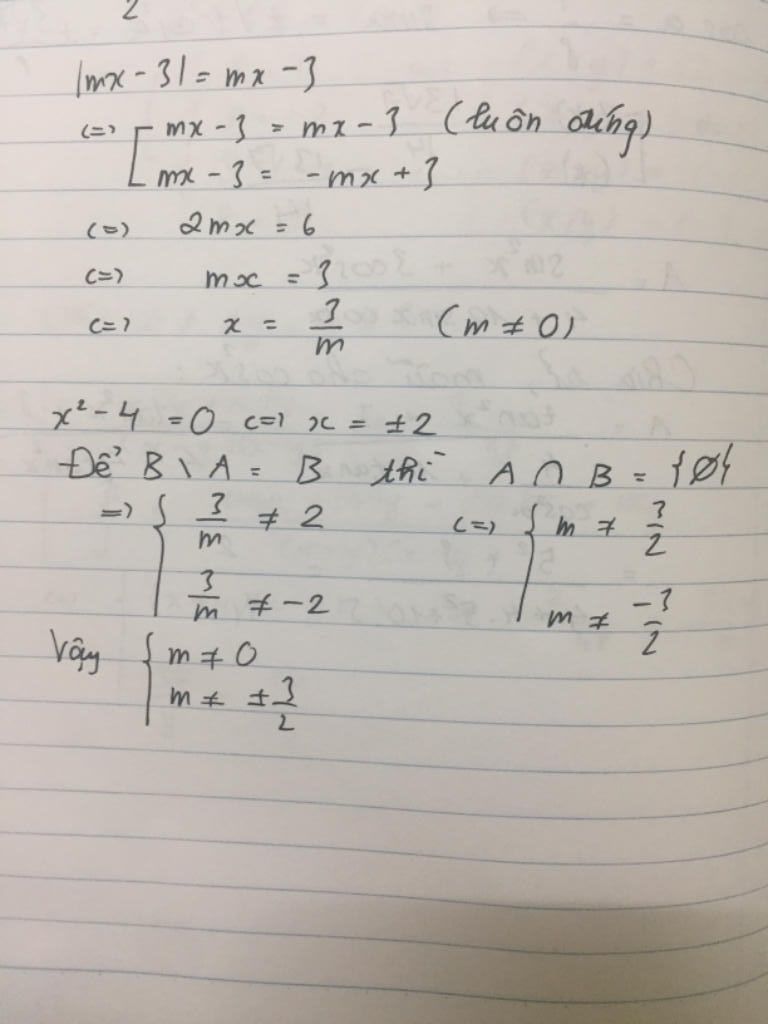 2
|mx - 3| = mx - 3
<=> [ mx - 3 = mx - 3 (luôn đúng)
mx - 3 = -mx + 3
<=> 2mx = 6
<=> mx = 3
<=> x = 3/m (m ≠ 0)
x² - 4 = 0 <=> x = ±2
Để B \ A = B thì A ∩ B = {Ø}
=> { 3/m ≠ 2 <=> { m ≠ 3/2
3/m ≠ -2 m ≠ -3/2
Vậy { m ≠ 0
m ≠ ± 3/2